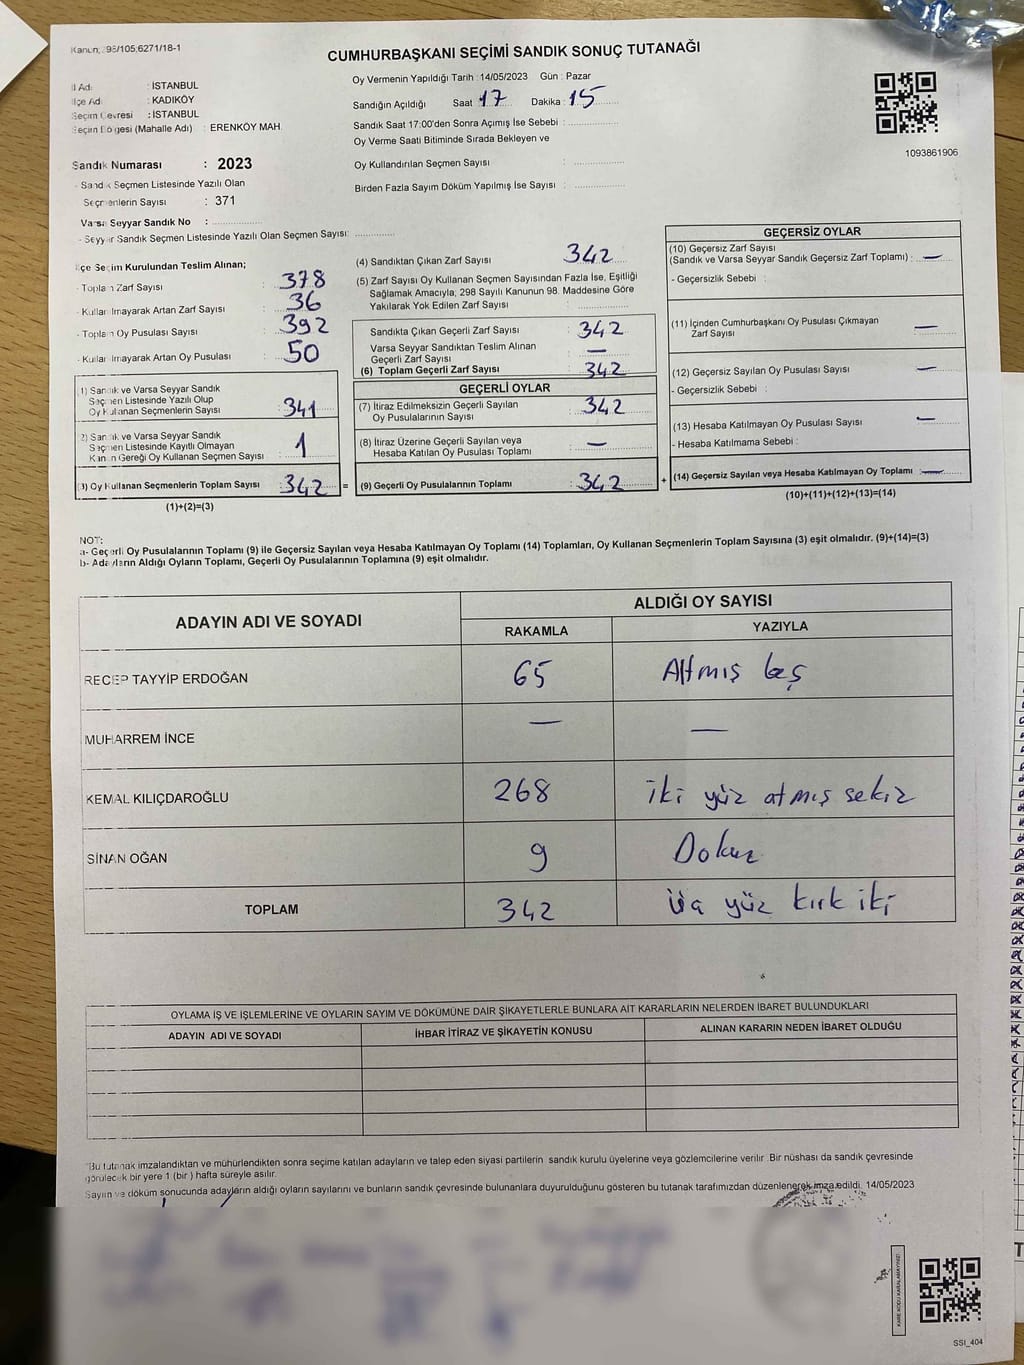 Kanun: 298/105;6271/18-1
CUMHURBAŞKANI SEÇİMİ SANDIK SONUÇ TUTANAĞI
İl Adı : İSTANBUL
İlçe Adı : KADIKÖY
Seçim Çevresi : İSTANBUL
Seçim Bölgesi (Mahalle Adı) : ERENKÖY MAH.
Sandık Numarası : 2023
- Sandık Seçmen Listesinde Yazılı Olan
Seçmenlerin Sayısı : 371
Varsa Seyyar Sandık No :
- Seyyar Sandık Seçmen Listesinde Yazılı Olan Seçmen Sayısı:
Oy Vermenin Yapıldığı Tarih : 14/05/2023 Gün : Pazar
Sandığın Açıldığı Saat 17 Dakika : 15
Sandık Saat 17:00'den Sonra Açımış İse Sebebi :
Oy Verme Saati Bitiminde Sırada Bekleyen ve
Oy Kullandırılan Seçmen Sayısı :
Birden Fazla Sayım Döküm Yapılmış İse Sayısı :
1093861906
İlçe Seçim Kurulundan Teslim Alınan;
- Toplam Zarf Sayısı : 378
- Kullanılmayarak Artan Zarf Sayısı : 36
- Toplam Oy Pusulası Sayısı : 392
- Kullanılmayarak Artan Oy Pusulası : 50
1) Sandık ve Varsa Seyyar Sandık
Seçmen Listesinde Yazılı Olup
Oy Kullanan Seçmenlerin Sayısı : 341
2) Sandık ve Varsa Seyyar Sandık
Seçmen Listesinde Kayıtlı Olmayan
Kanun Gereği Oy Kullanan Seçmen Sayısı : 1
(3) Oy Kullanan Seçmenlerin Toplam Sayısı : 342 =
(1)+(2)=(3)
(4) Sandıktan Çıkan Zarf Sayısı : 342
(5) Zarf Sayısı Oy Kullanan Seçmen Sayısından Fazla İse, Eşitliği
Sağlamak Amacıyla; 298 Sayılı Kanunun 98. Maddesine Göre
Yakılarak Yok Edilen Zarf Sayısı :
Sandıkta Çıkan Geçerli Zarf Sayısı : 342
Varsa Seyyar Sandıktan Teslim Alınan
Geçerli Zarf Sayısı : —
(6) Toplam Geçerli Zarf Sayısı : 342
GEÇERLİ OYLAR
(7) İtiraz Edilmeksizin Geçerli Sayılan
Oy Pusulalarının Sayısı : 342
(8) İtiraz Üzerine Geçerli Sayılan veya
Hesaba Katılan Oy Pusulası Toplamı : —
(9) Geçerli Oy Pusulalarının Toplamı : 342 +
GEÇERSİZ OYLAR
(10) Geçersiz Zarf Sayısı
(Sandık ve Varsa Seyyar Sandık Geçersiz Zarf Toplamı) : —
- Geçersizlik Sebebi :
(11) İçinden Cumhurbaşkanı Oy Pusulası Çıkmayan
Zarf Sayısı : —
(12) Geçersiz Sayılan Oy Pusulası Sayısı : —
- Geçersizlik Sebebi :
(13) Hesaba Katılmayan Oy Pusulası Sayısı : —
- Hesaba Katılmama Sebebi :
(14) Geçersiz Sayılan veya Hesaba Katılmayan Oy Toplamı : —
(10)+(11)+(12)+(13)=(14)
NOT:
a- Geçerli Oy Pusulalarının Toplamı (9) ile Geçersiz Sayılan veya Hesaba Katılmayan Oy Toplamı (14) Toplamları, Oy Kullanan Seçmenlerin Toplam Sayısına (3) eşit olmalıdır. (9)+(14)=(3)
b- Adayların Aldığı Oyların Toplamı, Geçerli Oy Pusulalarının Toplamına (9) eşit olmalıdır.
ADAYIN ADI VE SOYADI
ALDIĞI OY SAYISI
RAKAMLA YAZIYLA
RECEP TAYYİP ERDOĞAN 65 Altmış beş
MUHARREM İNCE — —
KEMAL KILIÇDAROĞLU 268 iki yüz atmış sekiz
SİNAN OĞAN 9 Dokuz
TOPLAM 342 Üç yüz kırk iki
OYLAMA İŞ VE İŞLEMLERİNE VE OYLARIN SAYIM VE DÖKÜMÜNE DAİR ŞİKAYETLERLE BUNLARA AİT KARARLARIN NELERDEN İBARET BULUNDUKLARI
ADAYIN ADI VE SOYADI İHBAR İTİRAZ VE ŞİKAYETİN KONUSU ALINAN KARARIN NEDEN İBARET OLDUĞU
"Bu tutanak imzalandıktan ve mühürlendikten sonra seçime katılan adayların ve talep eden siyasi partilerin sandık kurulu üyelerine veya gözlemcilerine verilir. Bir nüshası da sandık çevresinde
görülecek bir yere 1 (bir ) hafta süreyle asılır.
Sayım ve döküm sonucunda adayların aldığı oyların sayılarını ve bunların sandık çevresinde bulunanlara duyurulduğunu gösteren bu tutanak tarafımızdan düzenlenerek imza edildi. 14/05/2023
KARE KODU KARALAMAYINIZ!
SSI_404